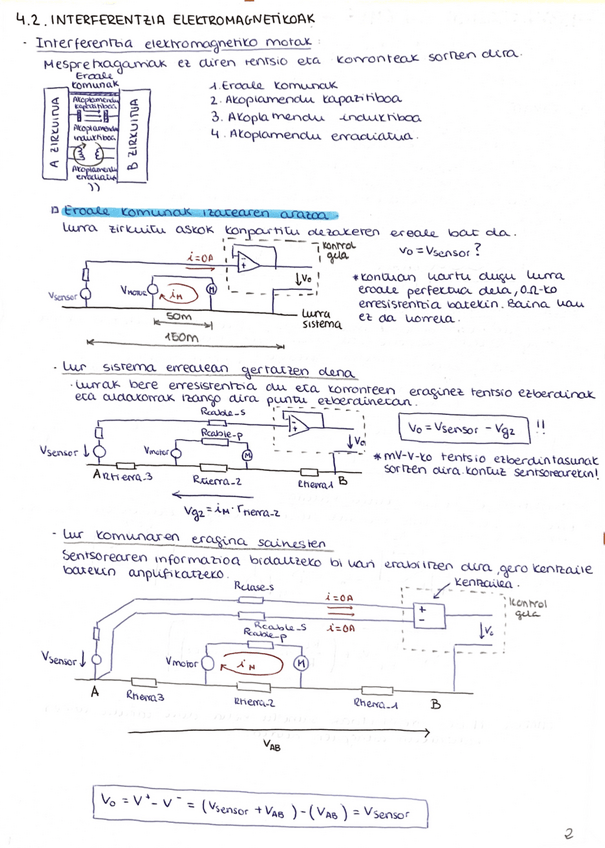 4.2. INTERFERENTZIA ELEKTROMAGNETIKOAK
- Interferentzia elektromagnetiko motak:
Mespretxagarriak ez diren tentsio eta korronteak sortzen dira.
Eroale komunak
A ZIRKUITUA
B ZIRKUITUA
Akoplamendu kapazitiboa
Akoplamendu induktiboa
Akoplamendu erradiatua
1. Eroale komunak
2. Akoplamendu kapazitiboa
3. Akoplamendu induktiboa
4. Akoplamendu erradiatua.
Eroale komunak izatearen arazoa
Lurra zirkuitu askok konpartitu dezaketen eroale bat da.
i=0A
Kontrol gela
Vo = Vsensor?
Vo
Vsensor
Vmotor
iM
M
50m
150m
Lurra sistema
* kontuan hartu dugu lurra
eroale perfektua dela, 0Ω-ko
erresistentzia batekin. Baina hau
ez da horrela.
- Lur sistema errealean gertatzen dena
· Lurrak bere erresistentzia du eta korronteen eraginez tentsio ezberdinak
eta aldakorrak izango dira puntu ezberdinetan.
Rcable-s
Rcable-p
Vsensor
Vmotor
M
Vo
A
Rtierra-3
Rtierra-2
rtierra1
B
Vg2 = iM · rtierra-2
Vo = Vsensor - Vg2 !!
* mV-V-ko tentsio ezberdintasunak
sortzen dira kontuz sentsorearekin!
- Lur komunaren eragina saihesten
Sentsorearen informazioa bidaltzeko bi hari erabiltzen dira, gero kentzaile
batekin anplifikatzeko.
Kentzailea.
i=0A
Kontrol gela
+
-
Rcable-s
Rcable-p
i=0A
Vo
Vsensor
Vmotor
iM
M
A
Rtierra3
Rtierra-2
Rtierra-1
B
VAB
Vo = V⁺ - V⁻ = (Vsensor + VAB) - (VAB) = Vsensor
2